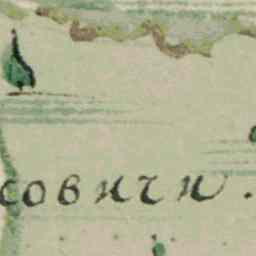 совичи.